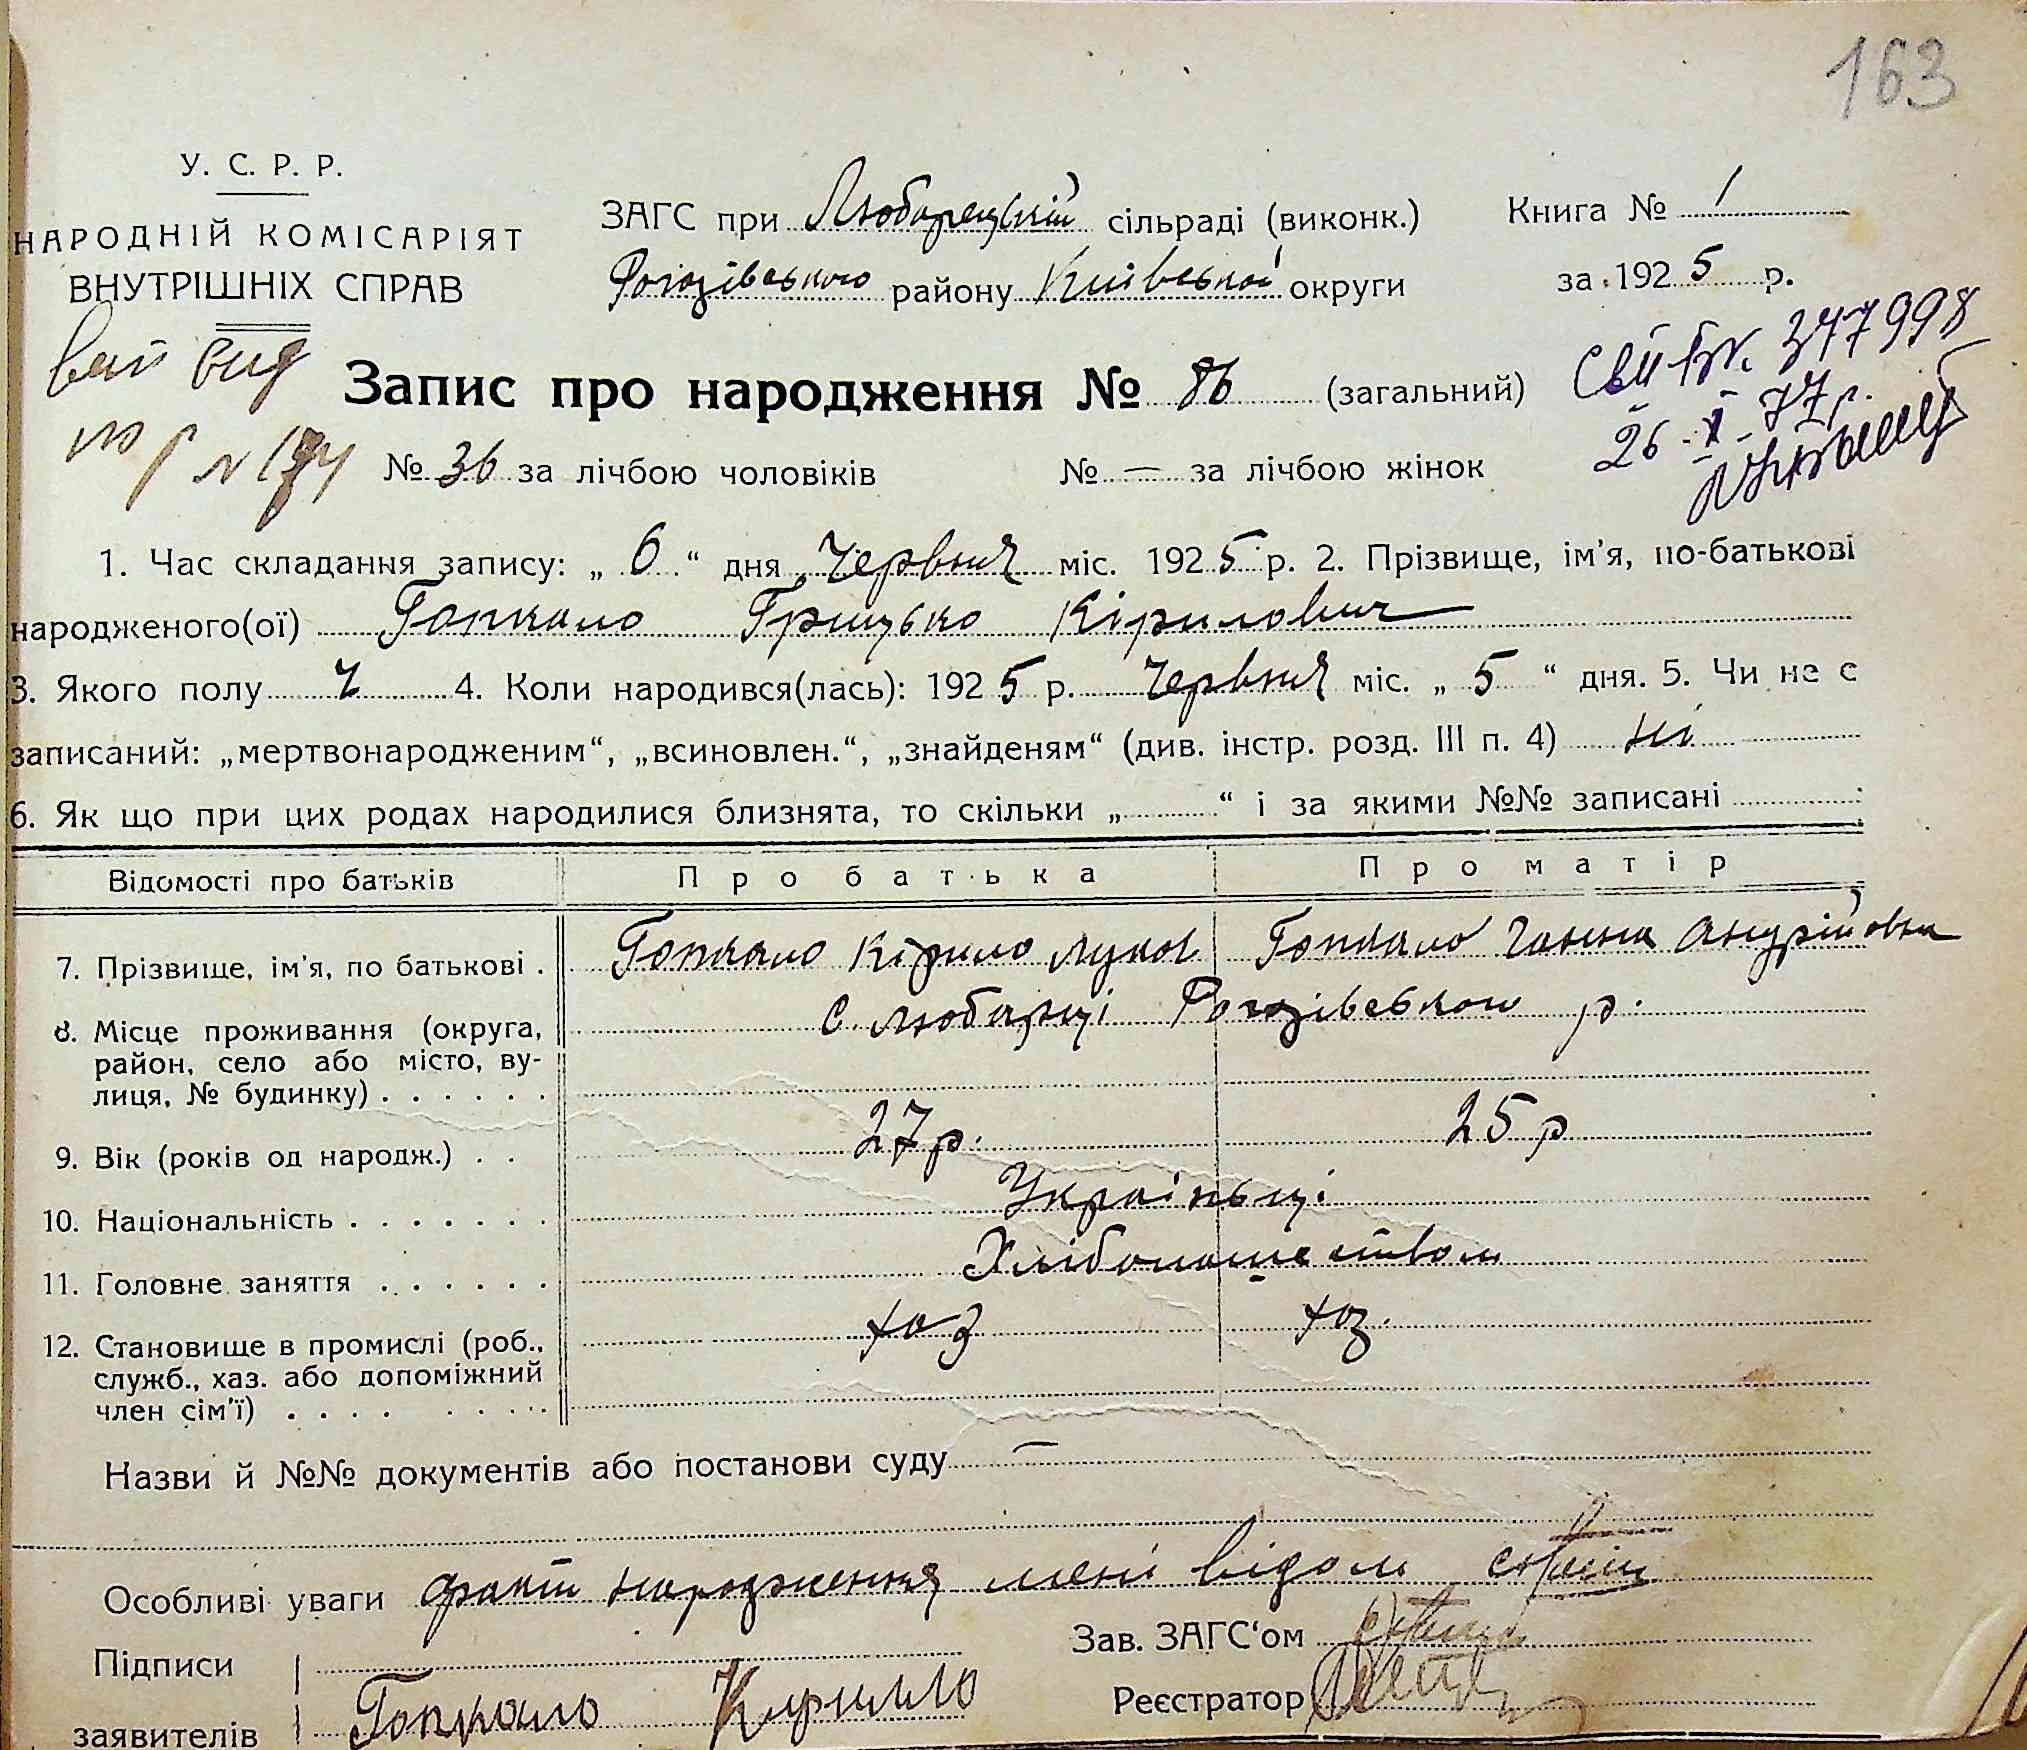 163
У. С. Р. Р.
НАРОДНІЙ КОМІСАРІЯТ
ВНУТРІШНІХ СПРАВ
ЗАГС при Любарецькій сільраді (виконк.)
Рогозівського району Київської округи
Книга № 1
за 1925 р.
Запис про народження № 86 (загальний)
347998
26 - X - 77 р.
№ 36 за лічбою чоловіків № — за лічбою жінок
1. Час складання запису: „ 6 “ дня Червня міс. 1925 р. 2. Прізвище, ім'я, по-батькові
народженого(ої) Гопкало Грицько Кірилович
3. Якого полу ч 4. Коли народився(лась): 1925 р. Червня міс. „ 5 “ дня. 5. Чи не є
записаний: „мертвонародженим“, „всиновлен.“, „знайденям“ (див. інстр. розд. III п. 4) ні
6. Як що при цих родах народилися близнята, то скільки „ “ і за якими №№ записані
Відомості про батьків Про батька Про матір
7. Прізвище, ім'я, по батькові . Гопкало Кірило Луков Гопкало Ганна Андрійовна
8. Місце проживання (округа, с. Любарці Рогозівського р.
район, село або місто, ву-
лиця, № будинку) . . . . . .
9. Вік (років од народж.) . . 27 р. 25 р
10. Національність . . . . . . . Україньці
11. Головне заняття . . . . . . Хлібопашеством
12. Становище в промислі (роб., хаз хаз.
служб., хаз. або допоміжний
член сім'ї) . . . . . . . .
Назви й №№ документів або постанови суду —
Особливі уваги факт народження мені відом
Зав. ЗАГС'ом
Підписи
Реєстратор
заявителів Гопкало Кирило